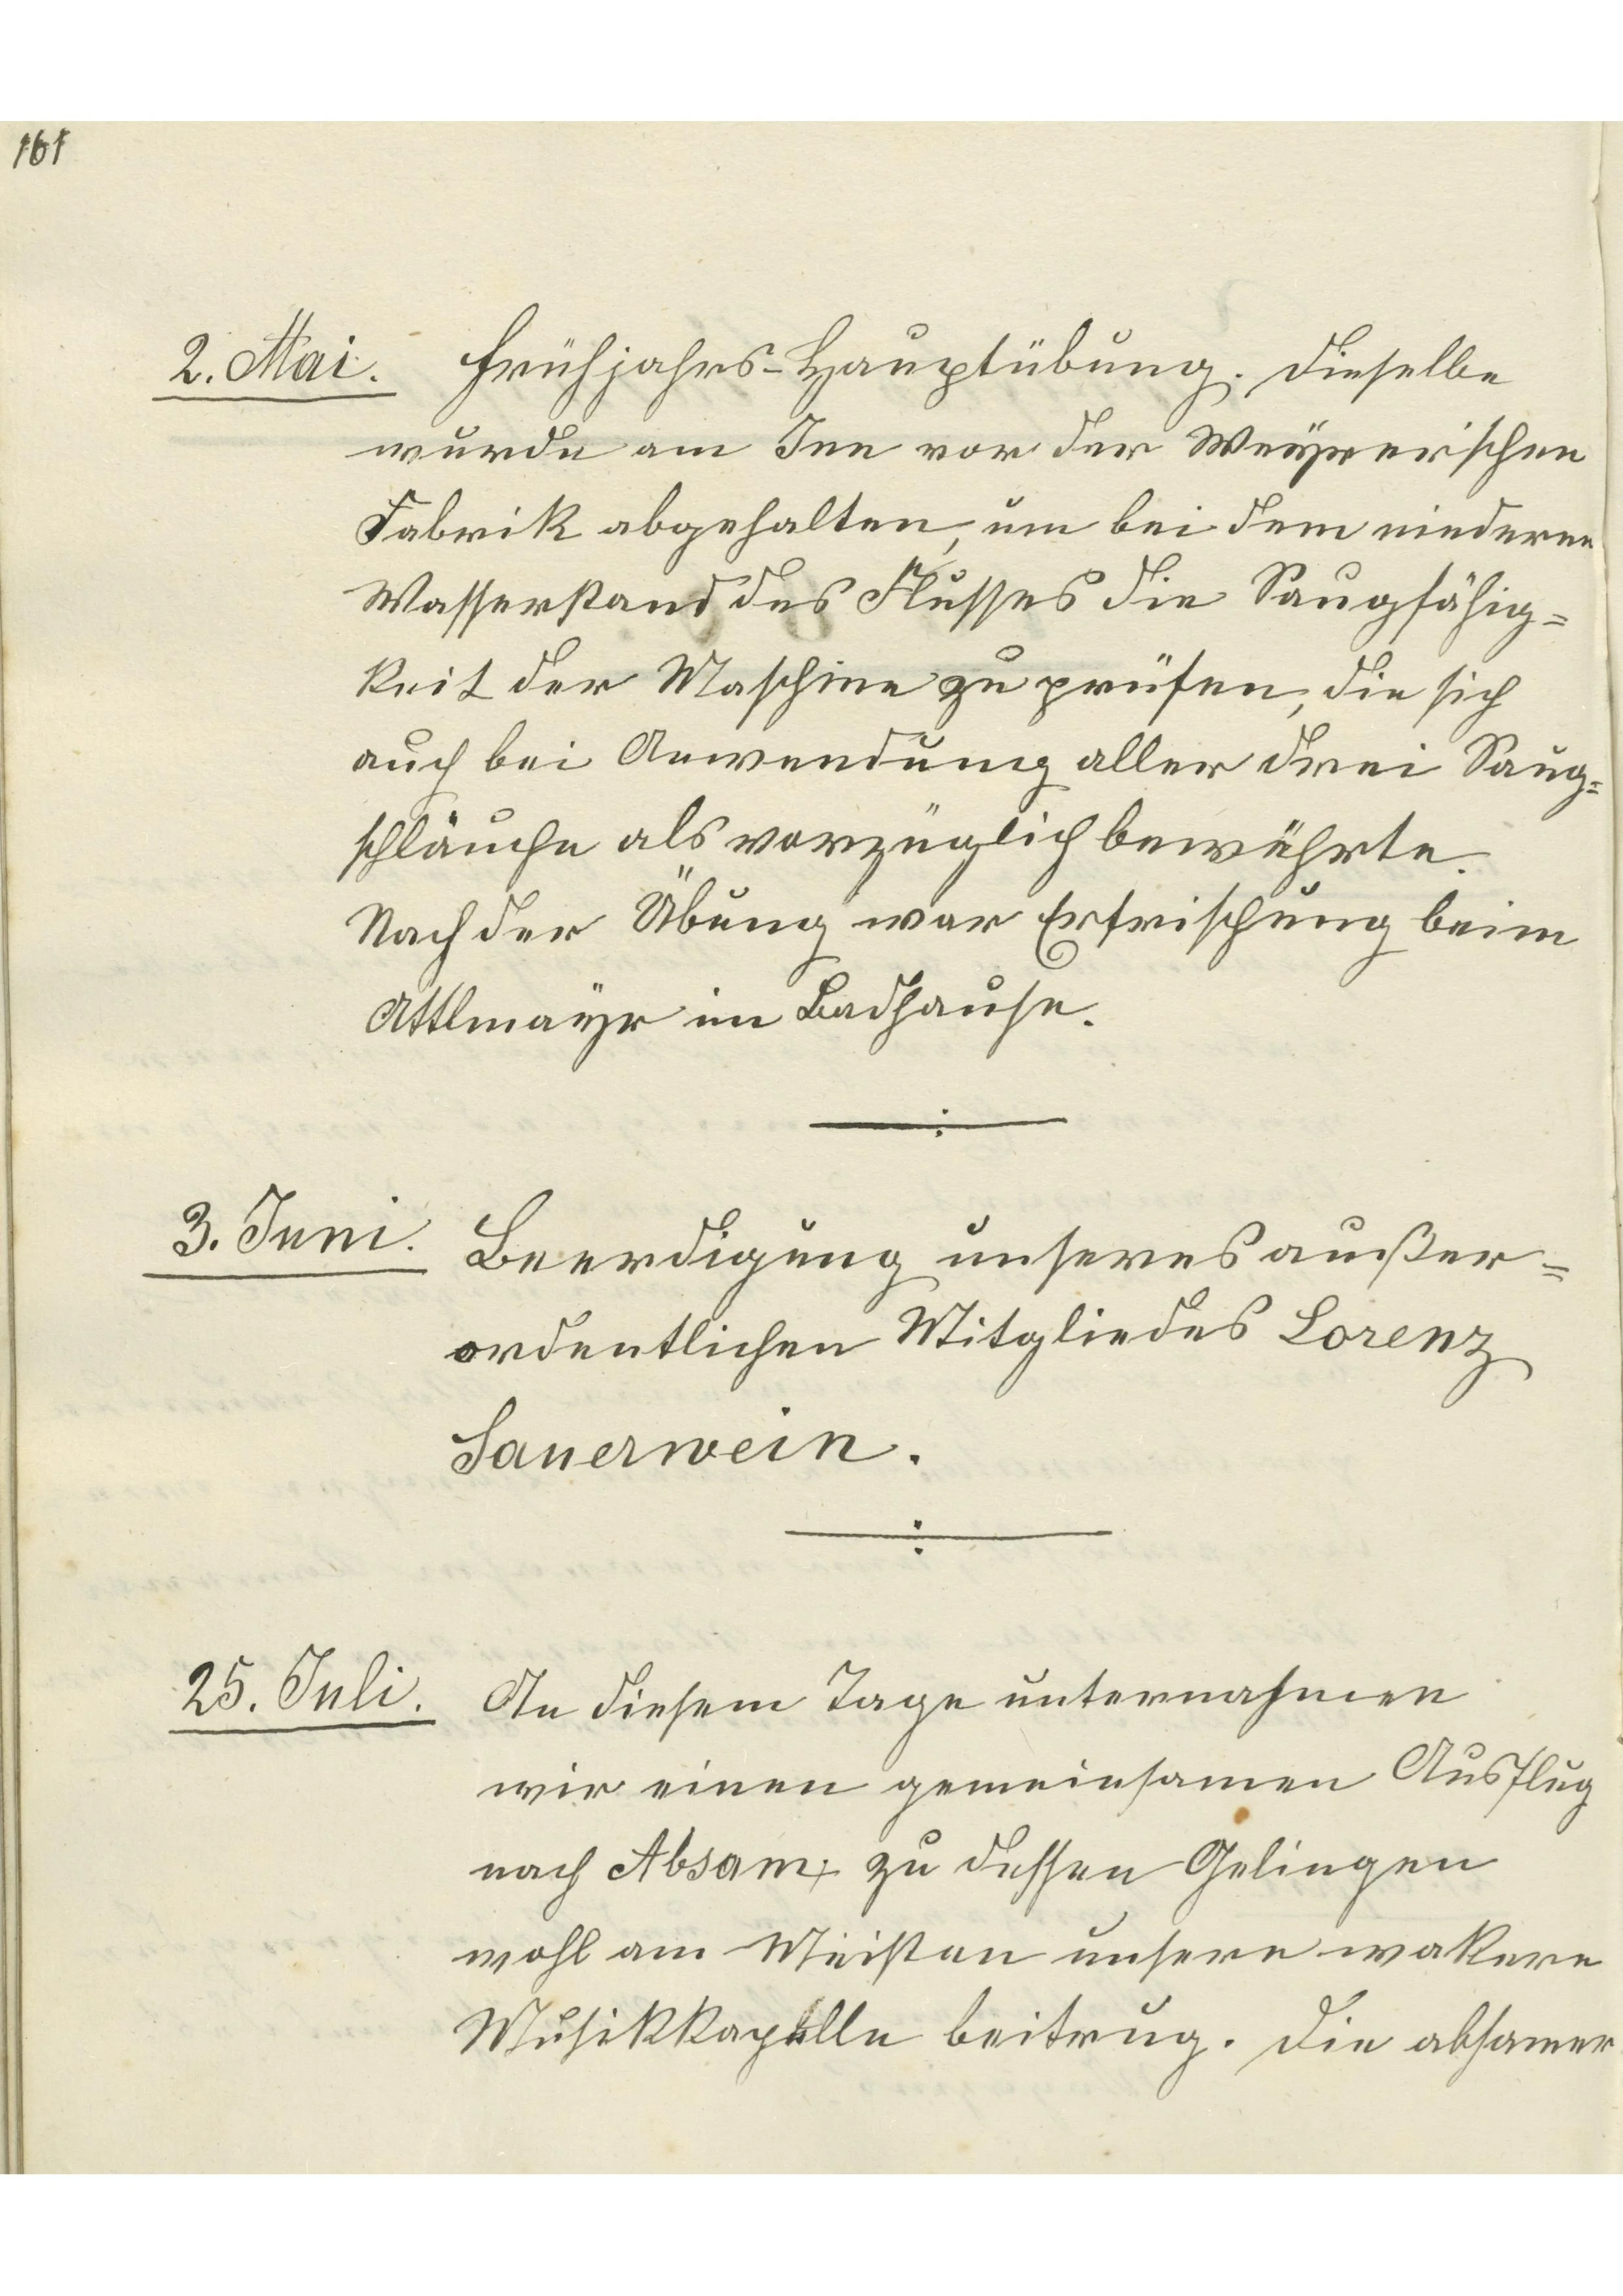 161
2. Mai. Frühjahrs-Hauptübung. Dieselbe
wurde am Inn vor der Weyrer'schen
Fabrik abgehalten, um bei dem niederen
Wasserstand des Flusses die Saugfähig=
keit der Maschine zu prüfen, die sich
auch bei Anwendung aller drei Saug=
schläuche als vorzüglich bewährte.
Nach der Übung war Erfrischung beim
Attlmayr im Badhause.
3. Juni. Beerdigung unseres außer=
ordentlichen Mitgliedes Lorenz
Sauerwein.
25. Juli. An diesem Tage unternahmen
wir einen gemeinsamen Ausflug
nach Absam, zu dessen Gelingen
wohl am Meisten unsere wakere
Musikkapelle beitrug. Die absamer